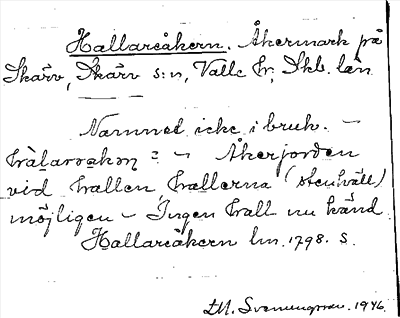 Hallareåkern. Åkermark på
Skärv, Skärv s:n, Valle hr, Skb. län
Namnet icke i bruk. –
hàlaroakən = – Åkerjorden
vid hallen hallerna (stenhäll)
möjligen – Ingen hall nu känd.
Hallareåkern lm. 1798. S.
D.M. Svenungsson. 1946.